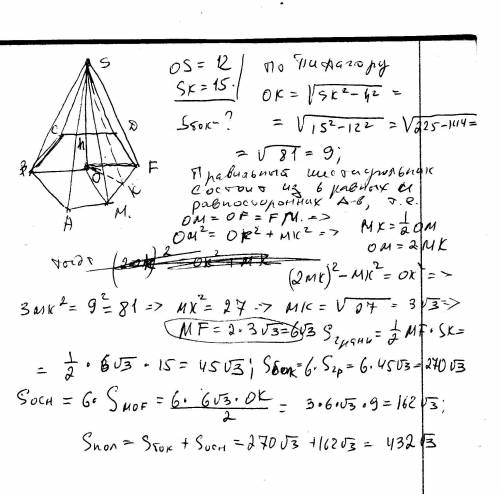 S
C D
h
B O F
K
A M.
OS = 12
SK = 15.
Sбок - ?
По Пифагору
OK = √SK² - h² =
= √15² - 12² = √225 - 144 =
= √81 = 9;
Правильный шестиугольник
состоит из 6 равных и
равносторонних Δ-в, т.е.
OM = OF = FM. =>
OM² = OK² + MK² => MK = 1/2 OM
OM = 2MK
тогда
(2MK)² - MK² = OK² =>
3MK² = 9² = 81 => MK² = 27 => MK = √27 = 3√3 =>
MF = 2 · 3√3 = 6√3 Sграни = 1/2 MF · SK =
= 1/2 · 6√3 · 15 = 45√3; Sбок = 6 · Sгр = 6 · 45√3 = 270√3
Sосн = 6 · S MOF = 6 · 6√3 · OK / 2 = 3 · 6 · √3 · 9 = 162√3;
Sпол = Sбок + Sосн = 270√3 + 162√3 = 432√3